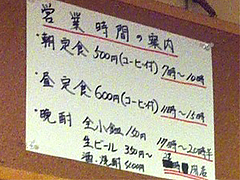 営業時間の案内
・朝定食 500円(コーヒー付) 7時〜10時
・昼定食 600円(コーヒー付) 11時〜15時
・晩酌 全小鉢 150円 17時〜22時半
生ビール 350円〜
酒・焼酎 400円 閉店